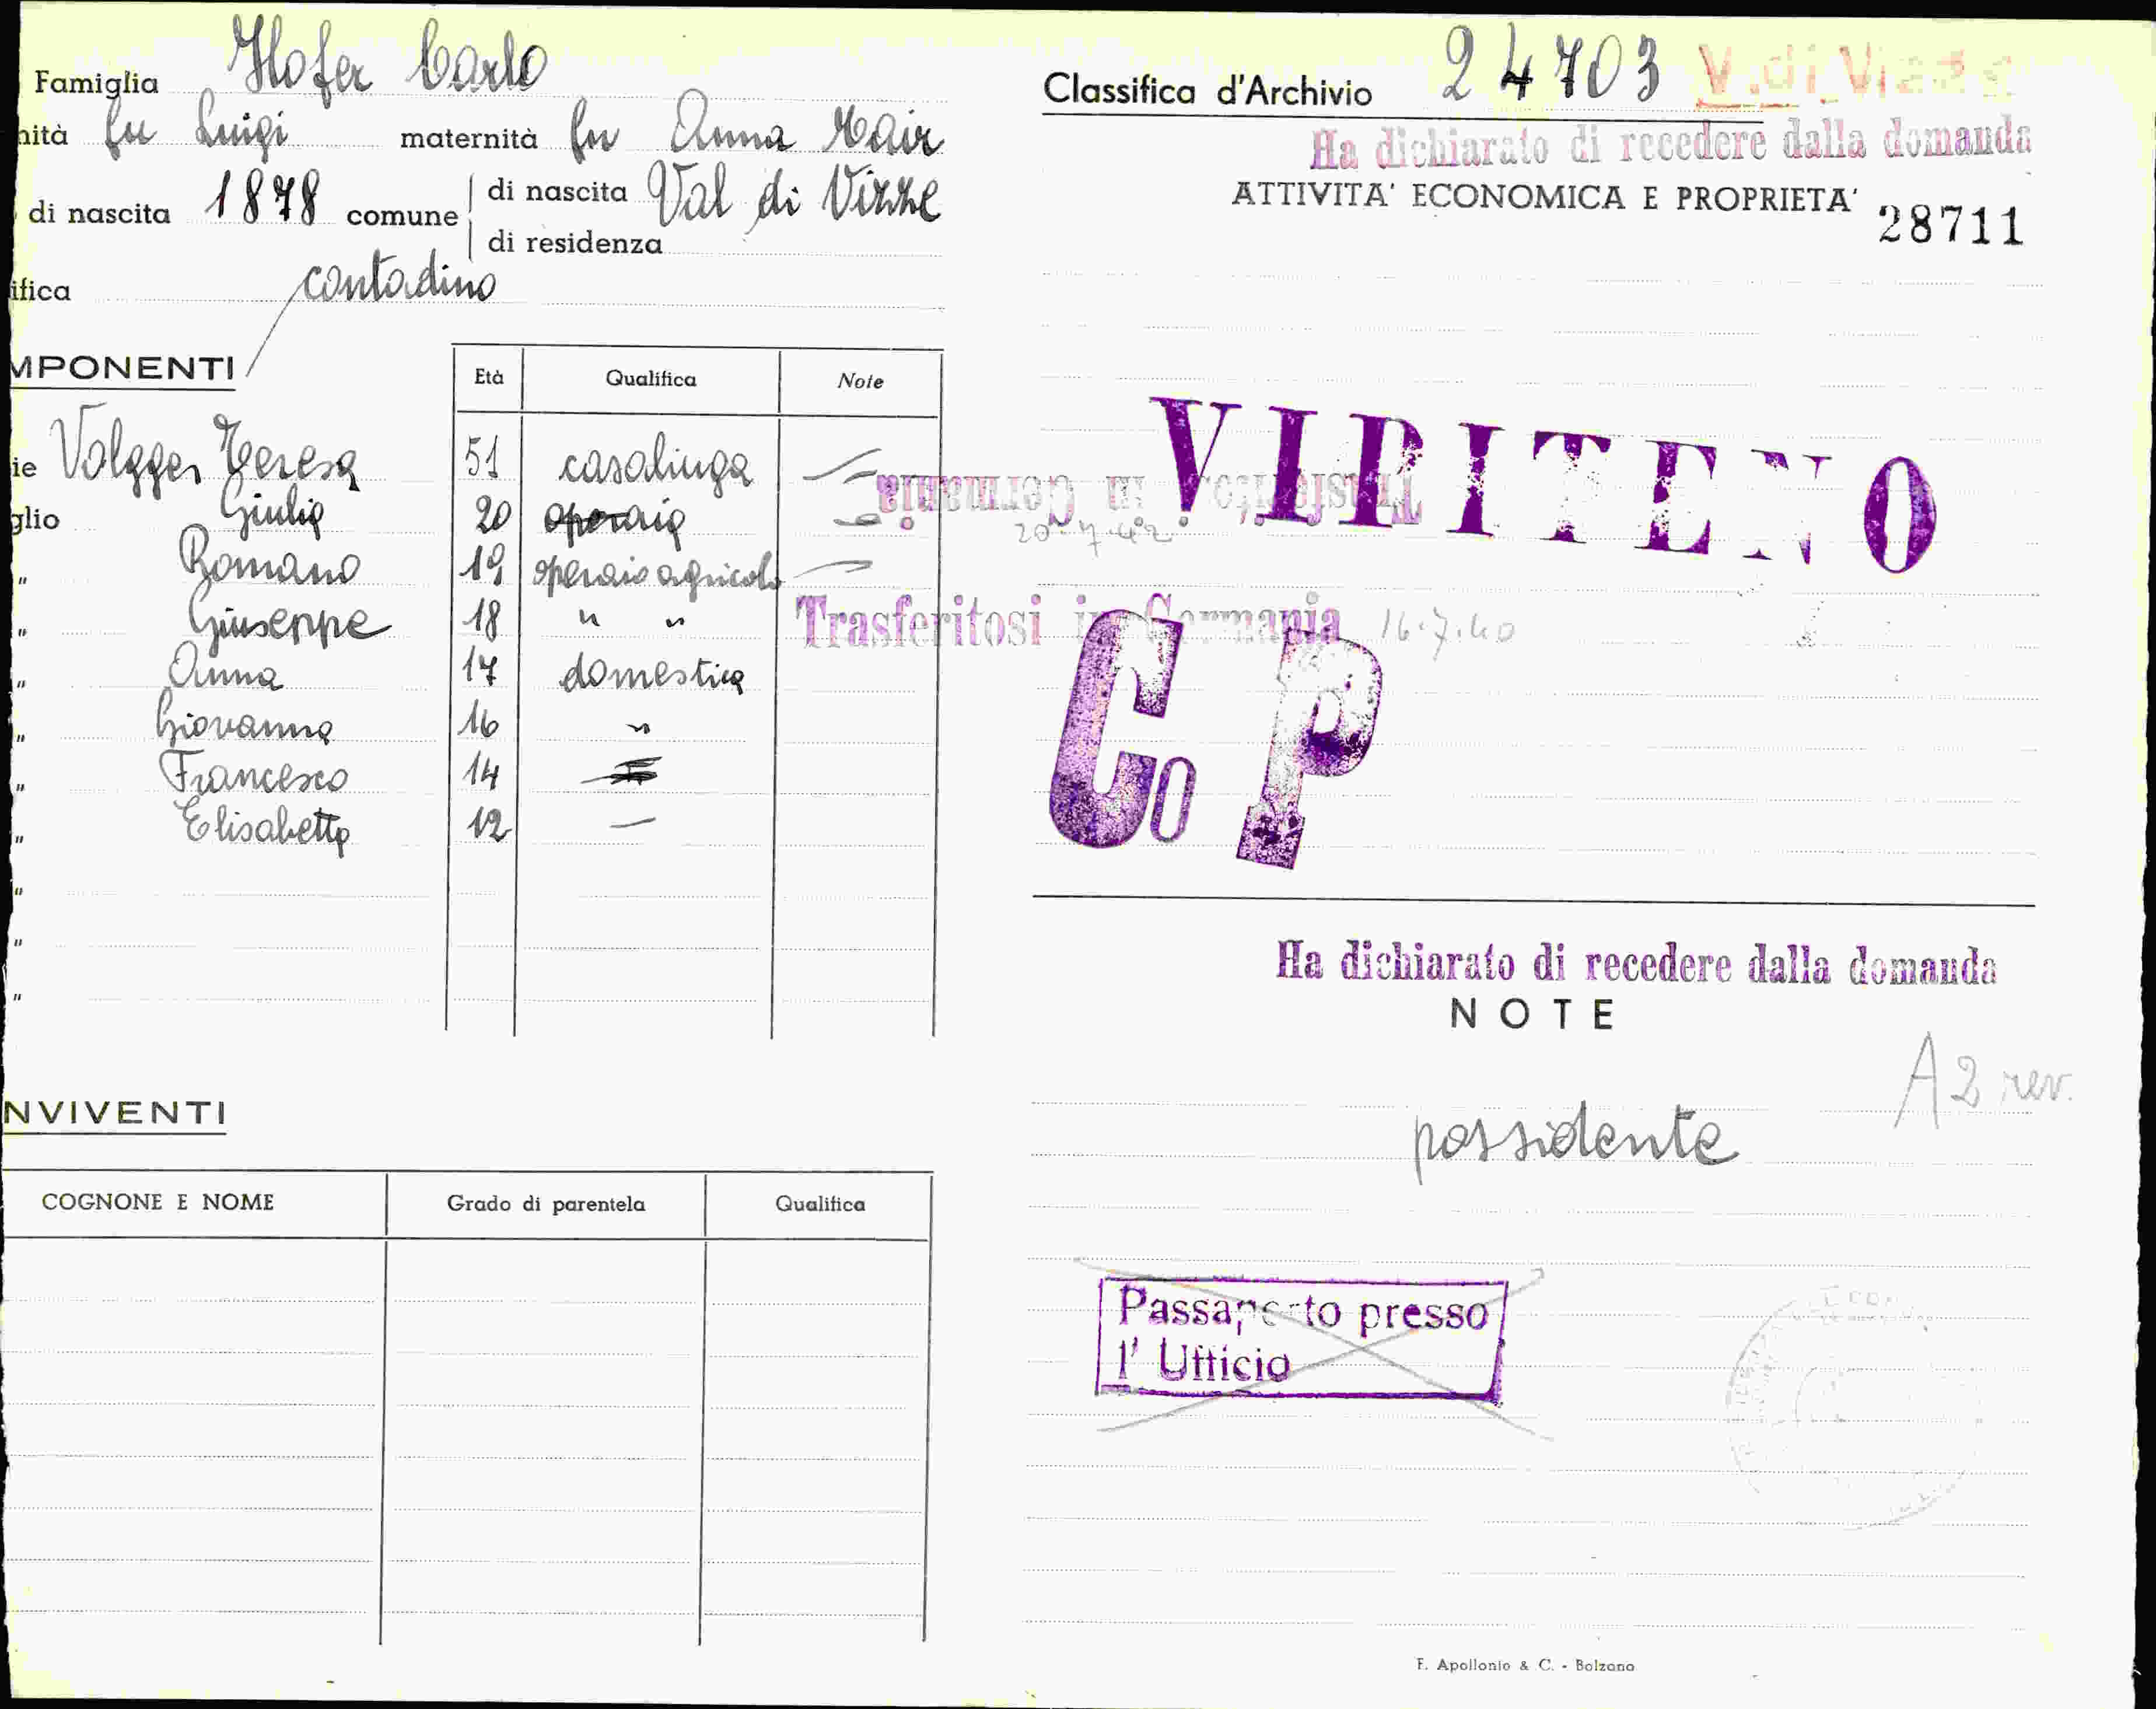 Famiglia Hofer Carlo
nità fu Luigi maternità fu Anna Mair
di nascita 1878 comune di nascita Val di Vizze
di residenza
ifica contadino
MPONENTI
Età Qualifica Note
ie Volgger Teresa 51 casalinga
glio Giulia 20 operaia
" Romano 19 operaio agricolo
" Giuseppe 18 " "
" Anna 17 domestica
" Giovanna 16 "
" Francesco 14
" Elisabetta 12 —
"
"
"
NVIVENTI
COGNONE E NOME Grado di parentela Qualifica
Classifica d'Archivio 24703 V. di Vizze
Ha dichiarato di recedere dalla domanda
ATTIVITA' ECONOMICA E PROPRIETA' 28711
VIPITENO
Trasferitosi in Germania
20-7-42
Trasferitosi in Germania 16.7.40
Co P
Ha dichiarato di recedere dalla domanda
NOTE
A2 rev.
possidente
Passaporto presso
l' Ufficio
F. Apollonio & C. - Bolzano